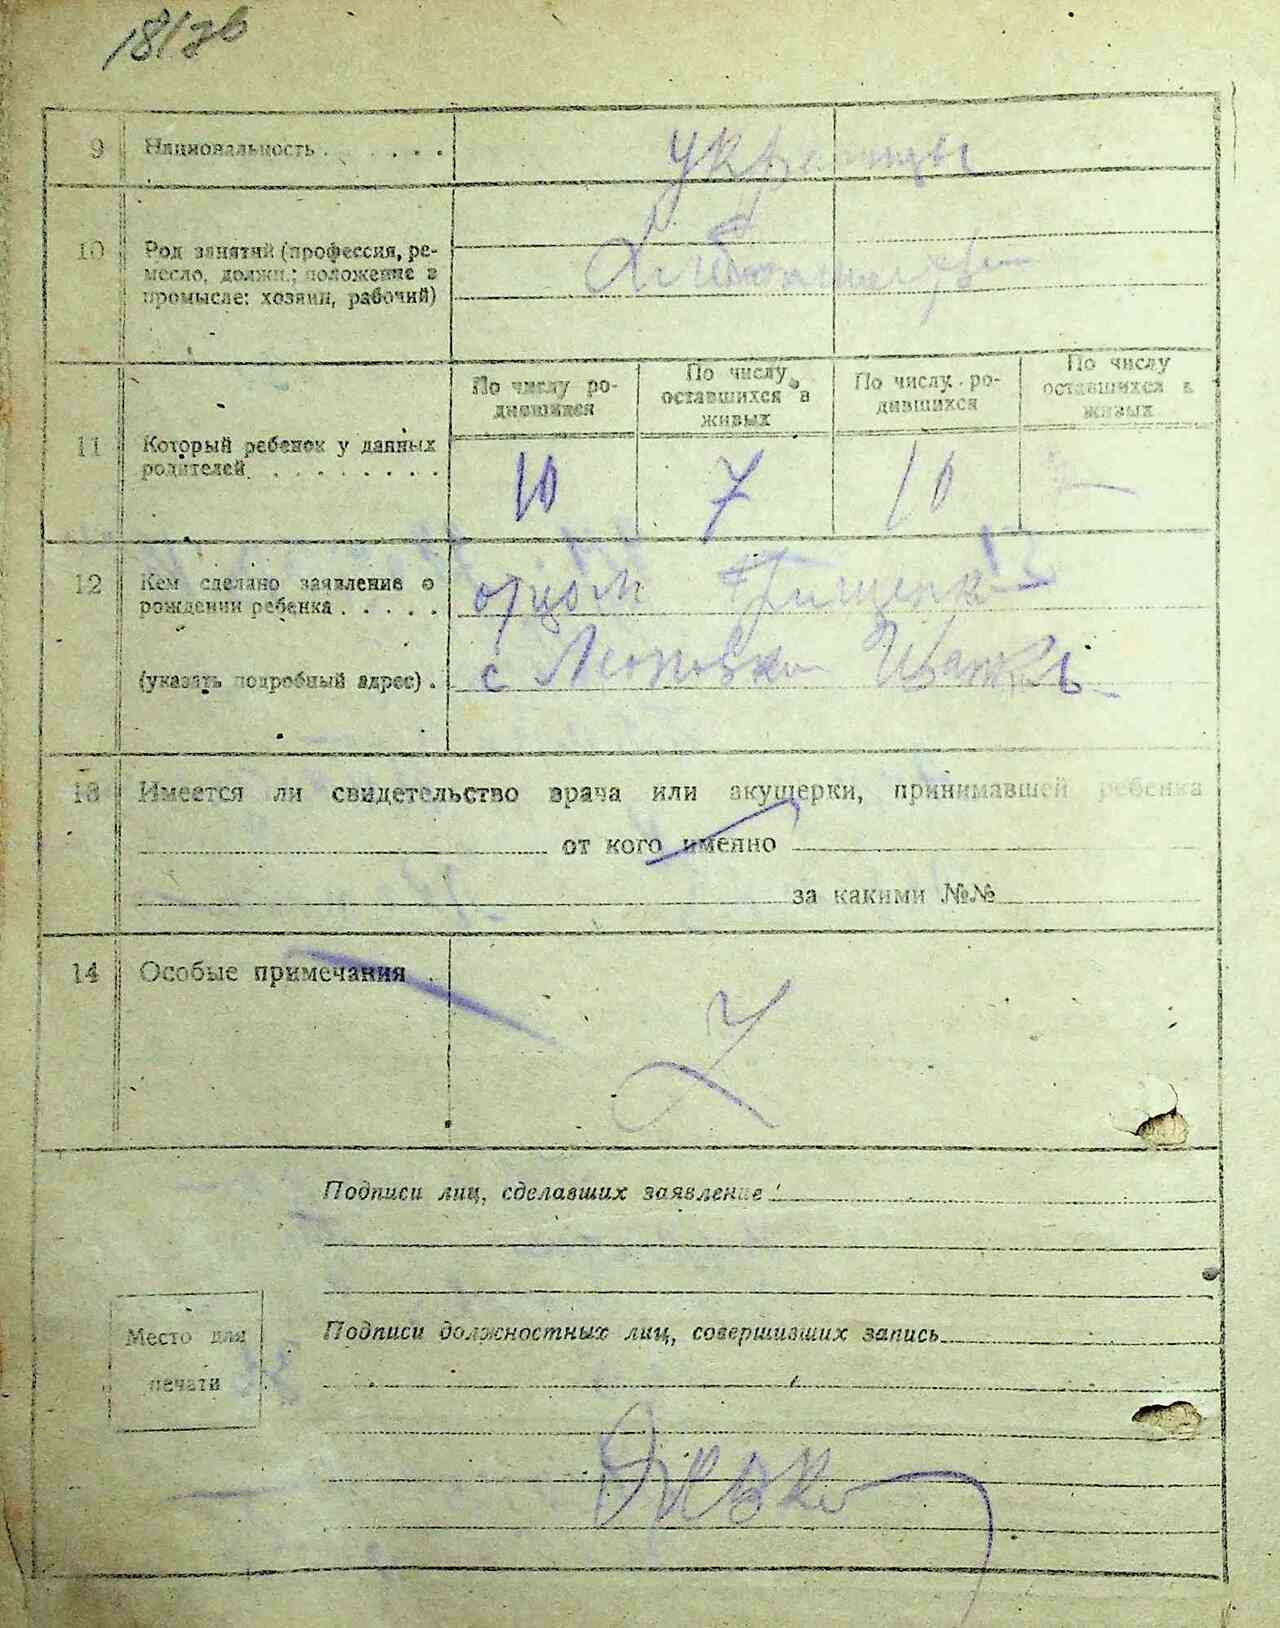 18/зв
9 Национальность . . . . . . украинцы
10 Род занятий (профессия, ре-
месло, должн.; положение в
промысле: хозяин, рабочий)
По числу ро-
дившихся
По числу
оставшихся в
живых
По числу ро-
дившихся
По числу
оставшихся в
живых
11 Который ребенок у данных
родителей . . . . . . . . .
10 7 10
12 Кем сделано заявление о
рождении ребенка . . . . . отцом
(указать подробный адрес) . с
13 Имеется ли свидетельство врача или акушерки, принимавшей ребенка
от кого именно
за какими №№
14 Особые примечания .
Подписи лиц, сделавших заявление :
Место для
печати
Подписи должностных лиц, совершивших запись